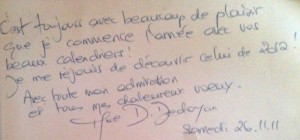 C'est toujours avec beaucoup de plaisir
que je commence l'année avec vos
beaux calendriers!
Je me réjouis de découvrir celui de 2012!
Avec toute mon admiration
et tous mes chaleureux voeux.
D.
Samedi 26.11.11